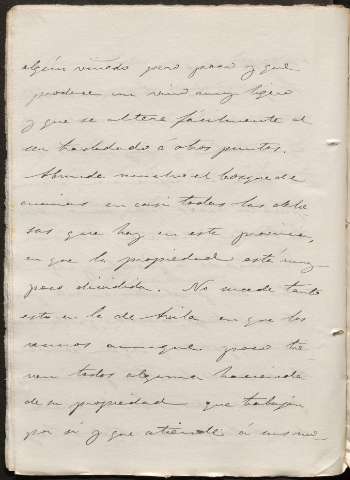 algún viñedo pero poco y que
produce un vino muy ligero
y que se altera fácilmente al
ser trasladado á otros puntos.
Abunda el bosque de
encinas en casi todas las dehe
sas que hay en esta provincia,
en que la propiedad está muy
poco dividida. No sucede tanto
esto en la de Avila en que los
vecinos aunque poco tie-
nen todos alguna hacienda
de su propiedad que trabajan
por si y que atiende á su